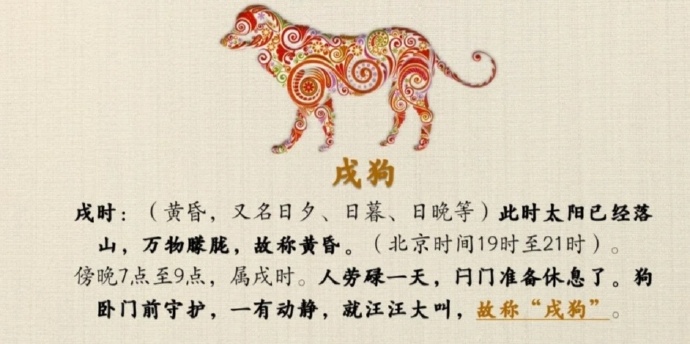 戌狗
戌时：（黄昏，又名日夕、日暮、日晚等）此时太阳已经落
山，万物朦胧，故称黄昏。（北京时间19时至21时）。
傍晚7点至9点，属戌时。人劳碌一天，闩门准备休息了。狗
卧门前守护，一有动静，就汪汪大叫，故称“戌狗”。